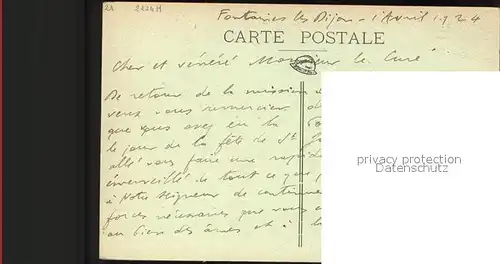 24 2424H
Fontaines les Dijon - 1 Avril 1924
CARTE POSTALE
Cher et vénéré Monsieur le Curé
De retour de la mission
vous remercier
que vous avez eu la
le jour de la fête de St
allé vous faire une rapide
émerveillé de tout ce que
à Notre Seigneur de continuer
forces nécessaires que vous
au bien des âmes et à
privacy protection
Datenschutz